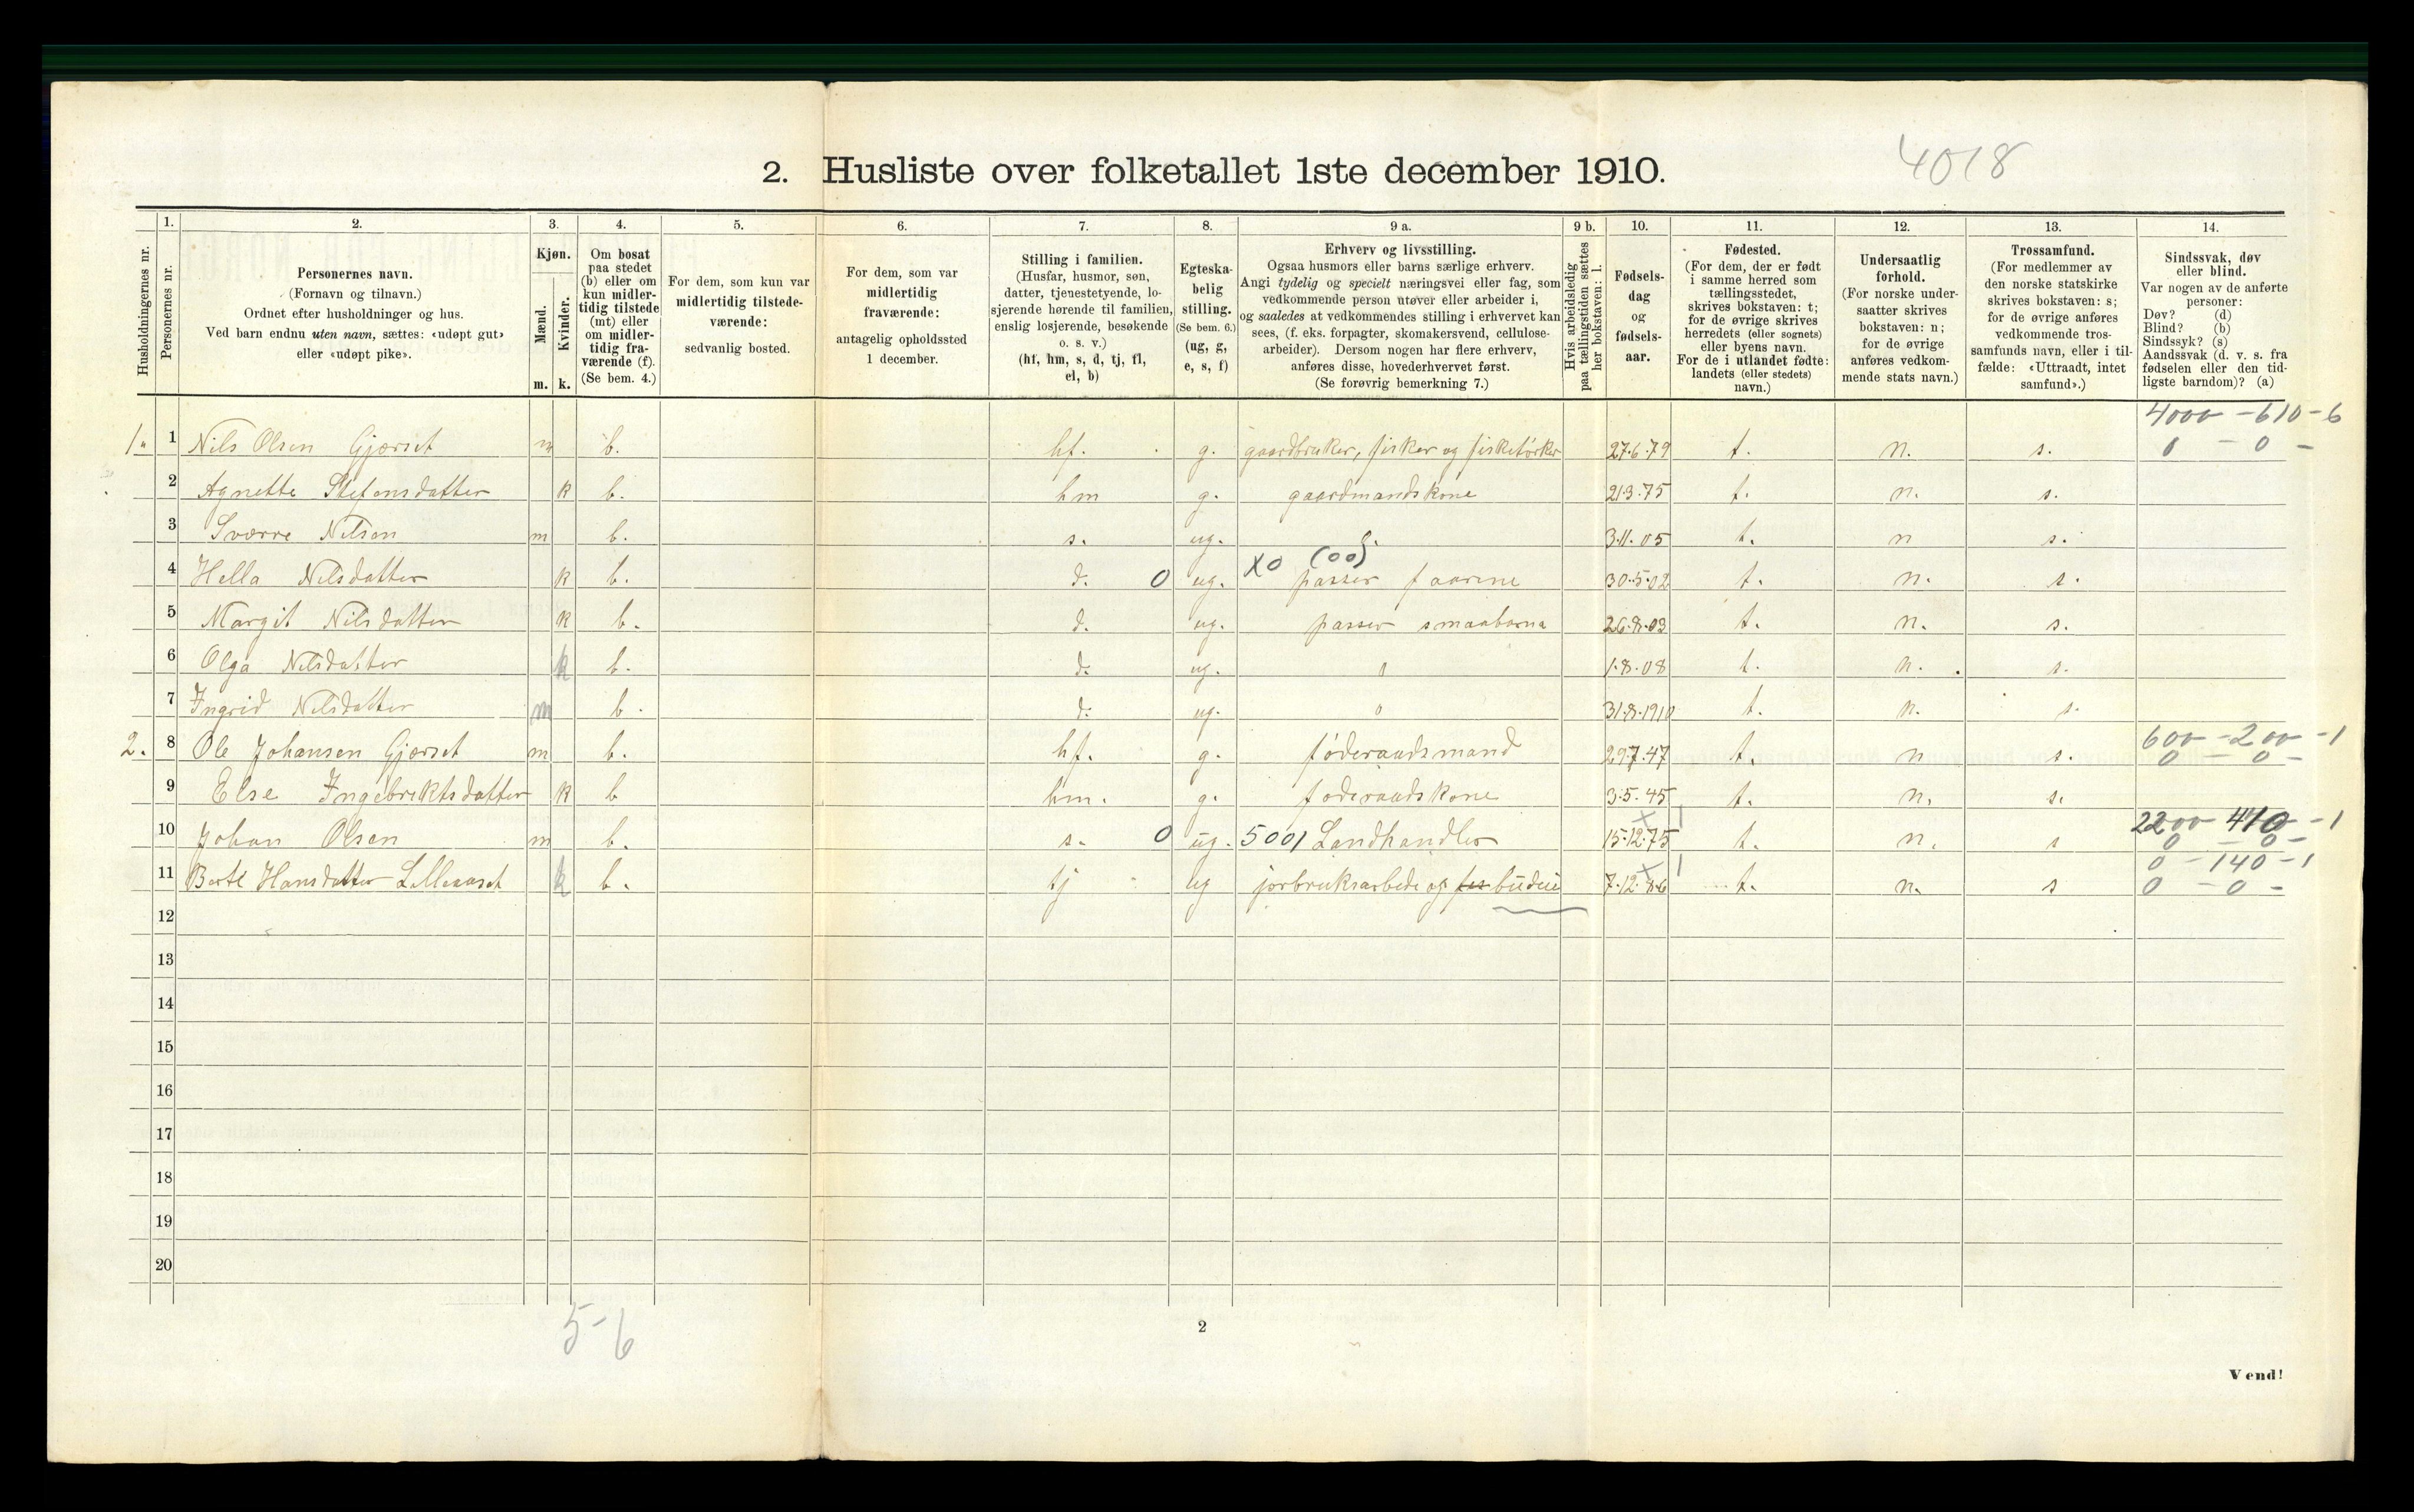 4018
2. Husliste over folketallet 1ste december 1910.
Husholdningernes nr.
1.
Personernes nr.
2.
Personernes navn.
(Fornavn og tilnavn.)
Ordnet efter husholdninger og hus.
Ved barn endnu uten navn, sættes: «udøpt gut»
eller «udøpt pike».
3.
Kjøn.
Mænd.
Kvinder.
m. k.
4.
Om bosat
paa stedet
(b) eller om
kun midler-
tidig tilstede
(mt) eller
om midler-
tidig fra-
værende (f).
(Se bem. 4.)
5.
For dem, som kun var
midlertidig tilstede-
værende:
sedvanlig bosted.
6.
For dem, som var
midlertidig
fraværende:
antagelig opholdssted
1 december.
7.
Stilling i familien.
(Husfar, husmor, søn,
datter, tjenestetyende, lo-
sjerende hørende til familien,
enslig losjerende, besøkende
o. s. v.)
(hf, hm, s, d, tj, fl,
el, b)
8.
Egteska-
belig
stilling.
(Se bem. 6.)
(ug, g,
e, s, f)
9 a.
Erhverv og livsstilling.
Ogsaa husmors eller barns særlige erhverv.
Angi tydelig og specielt næringsvei eller fag, som
vedkommende person utøver eller arbeider i,
og saaledes at vedkommendes stilling i erhvervet kan
sees, (f. eks. forpagter, skomakersvend, cellulose-
arbeider). Dersom nogen har flere erhverv,
anføres disse, hovederhvervet først.
(Se forøvrig bemerkning 7.)
9 b.
Hvis arbeidsledig
paa tællingstiden sættes
her bokstaven: l.
10.
Fødsels-
dag
og
fødsels-
aar.
11.
Fødested.
(For dem, der er født
i samme herred som
tællingsstedet,
skrives bokstaven: t;
for de øvrige skrives
herredets (eller sognets)
eller byens navn.
For de i utlandet fødte:
landets (eller stedets)
navn.)
12.
Undersaatlig
forhold.
(For norske under-
saatter skrives
bokstaven: n;
for de øvrige
anføres vedkom-
mende stats navn.)
13.
Trossamfund.
(For medlemmer av
den norske statskirke
skrives bokstaven: s;
for de øvrige anføres
vedkommende tros-
samfunds navn, eller i til-
fælde: «Uttraadt, intet
samfund».)
14.
Sindssvak, døv
eller blind.
Var nogen av de anførte
personer:
Døv? (d)
Blind? (b)
Sindssyk? (s)
Aandssvak (d. v. s. fra
fødselen eller den tid-
ligste barndom)? (a)
4000 - 610 - 6
1. 1 Nils Olsen Gjørset m b. hf. g. gaardbruker, fisker og fisketørker 27.6.79 t. n. s. 0 - 0 -
2 Agnette Stefensdatter k b. hm g. gaardmandskone 21.3.75 t. n. s.
3 Sverre Nilsen m b. s. ug. 3.11.05 t. n s.
X0 (00)
4 Hella Nilsdatter k b. d. 0 ug. passer faarene 30.5.02 t. n. s.
5 Margit Nilsdatter k b. d. ug. passer smaabarna 26.8.03 t. n. s.
6 Olga Nilsdatter k b. d. ug. 1.8.08 t. n. s.
7 Ingrid Nilsdatter m b. d. ug. 31.8.1910 t. n. s.
600 - 200 - 1
2. 8 Ole Johansen Gjørset m b. hf. g. føderaadsmand 29.7.47 t. n s. 0 - 0 -
9 Else Ingebriktsdatter k b hm. g. føderaadskone 3.5.45 t. n. s.
2200 410 - 1
10 Johan Olsen m b. s. 0 ug. 5001 Landhandler 15.12.75 t. n. s 0 - 0 -
0 - 140 - 1
11 Berte Hansdatter Lilleaaset k b. tj ug jorbruksarbede og budeie 7.12.86 t. n. s 0 - 0 -
12
13
14
15
16
17
18
19
20
5-6
2
Vend!